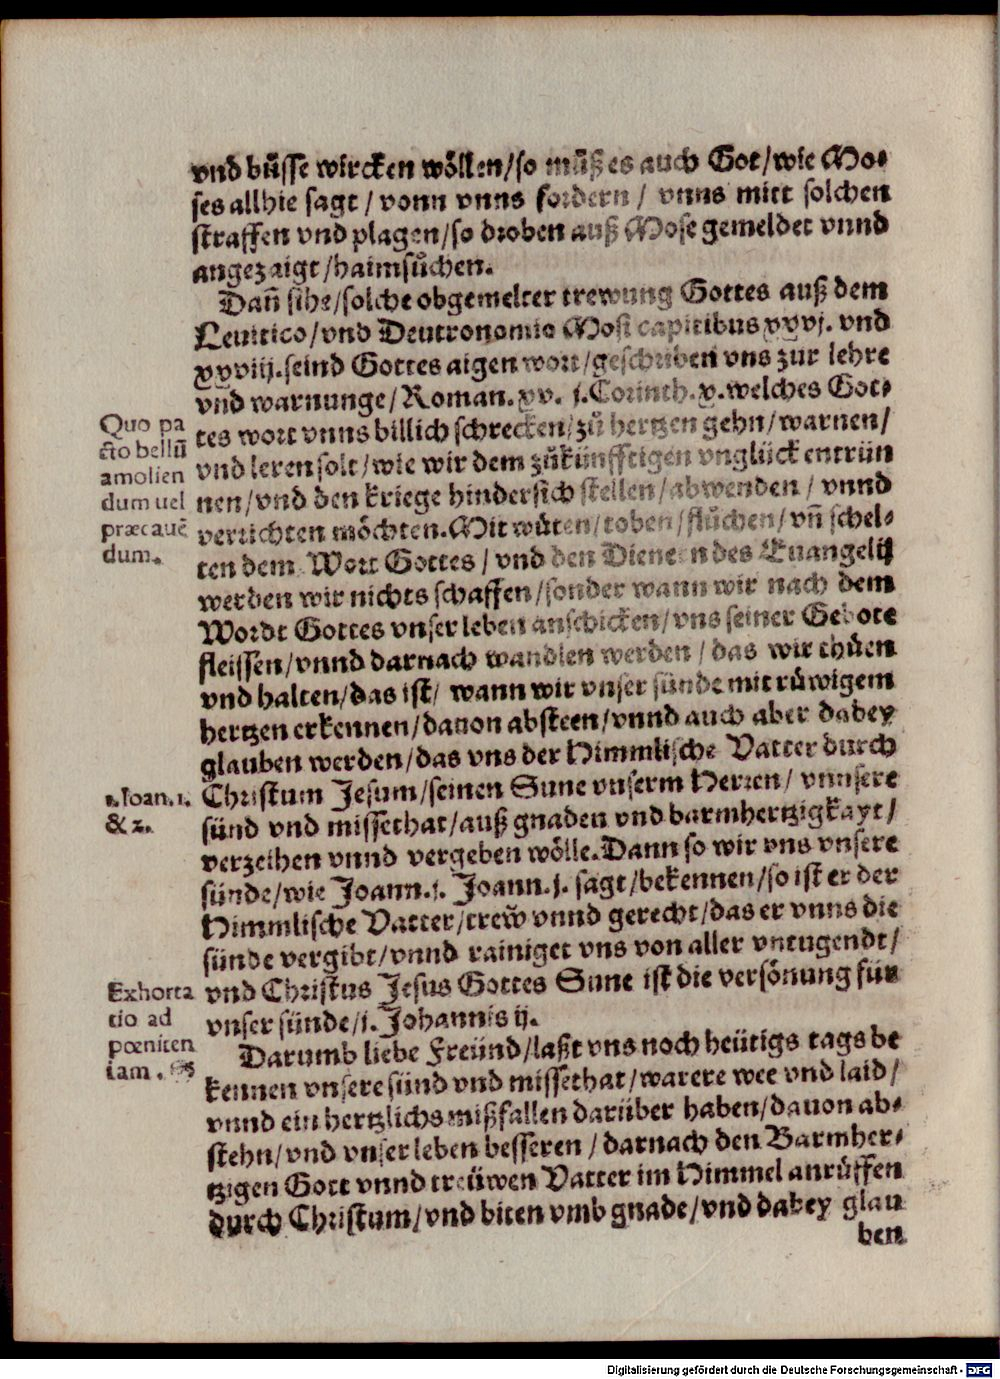 vnd bůsse wircken wöllen/so můß es auch Got/wie Mo-
ses allhie sagt / vonn vnns fordern / vnns mitt solchen
straffen vnd plagen/so droben auß Mose gemeldet vnnd
angezaigt/haimsůchen.
Dañ sihe/solche obgemelter trewung Gottes auß dem
Leuitico/vnd Deutronomio Mosi capitibus xxvj. vnd
xxviij.seind Gottes aigen wort/geschriben vns zur lehre
vnd warnunge/Roman.xv. j.Corinth.x.welches Got-
tes wort vnns billich schrecken/zů hertzen gehn/warnen/
vnd leren solt/wie wir dem zůkünfftigen vnglück entrün
nen/vnd den kriege hindersich stellen/abwenden / vnnd
verrichten möchten.Mit wůten/toben/flůchen/vñ schel-
ten dem Wort Gottes / vnd den Dienern des Euangelij
werden wir nichts schaffen/sonder wann wir nach dem
Wordt Gottes vnser leben anschicken/vns seiner Gebote
fleissen/vnnd darnach wandlen werden / das wir thůen
vnd halten/das ist/ wann wir vnser sünde mit růwigem
hertzen erkennen/dauon absteen/vnnd auch aber dabey
glauben werden/das vns der Himmlische Vatter durch
Christum Jesum/seinen Sune vnserm Herren/ vnnsere
sünd vnd missethat/auß gnaden vnd barmhertzigkayt/
verzeihen vnnd vergeben wölle.Dann so wir vns vnsere
sünde/wie Joann.j. Joann.j. sagt/bekennen/so ist er der
Himmlische Vatter/trew̃ vnnd gerecht/das er vnns die
sünde vergibt/vnnd rainiget vns von aller vntugendt/
vnd Christus Jesus Gottes Sune ist die versönung für
vnser sünde/j. Johannis ij.
Darumb liebe Freünd/laßt vns noch heütigs tags be
kennen vnsere sünd vnd missethat/warere wee vnd laid/
vnnd ein hertzlichs mißfallen darüber haben/dauon ab-
stehn/vnd vnser leben besseren / darnach den Barmher-
tzigen Gott vnnd treüwen Vatter im Himmel anrůffen
durch Christum/vnd biten vmb gnade/vnd dabey glau
ben
Quo pa
cto bellũ
amolien
dum uel
præcauẽ
dum.
1. Ioan. 1.
& 2.
Exhorta
tio ad
pœniten
tiam.
Digitalisierung gefördert durch die Deutsche Forschungsgemeinschaft - DFG